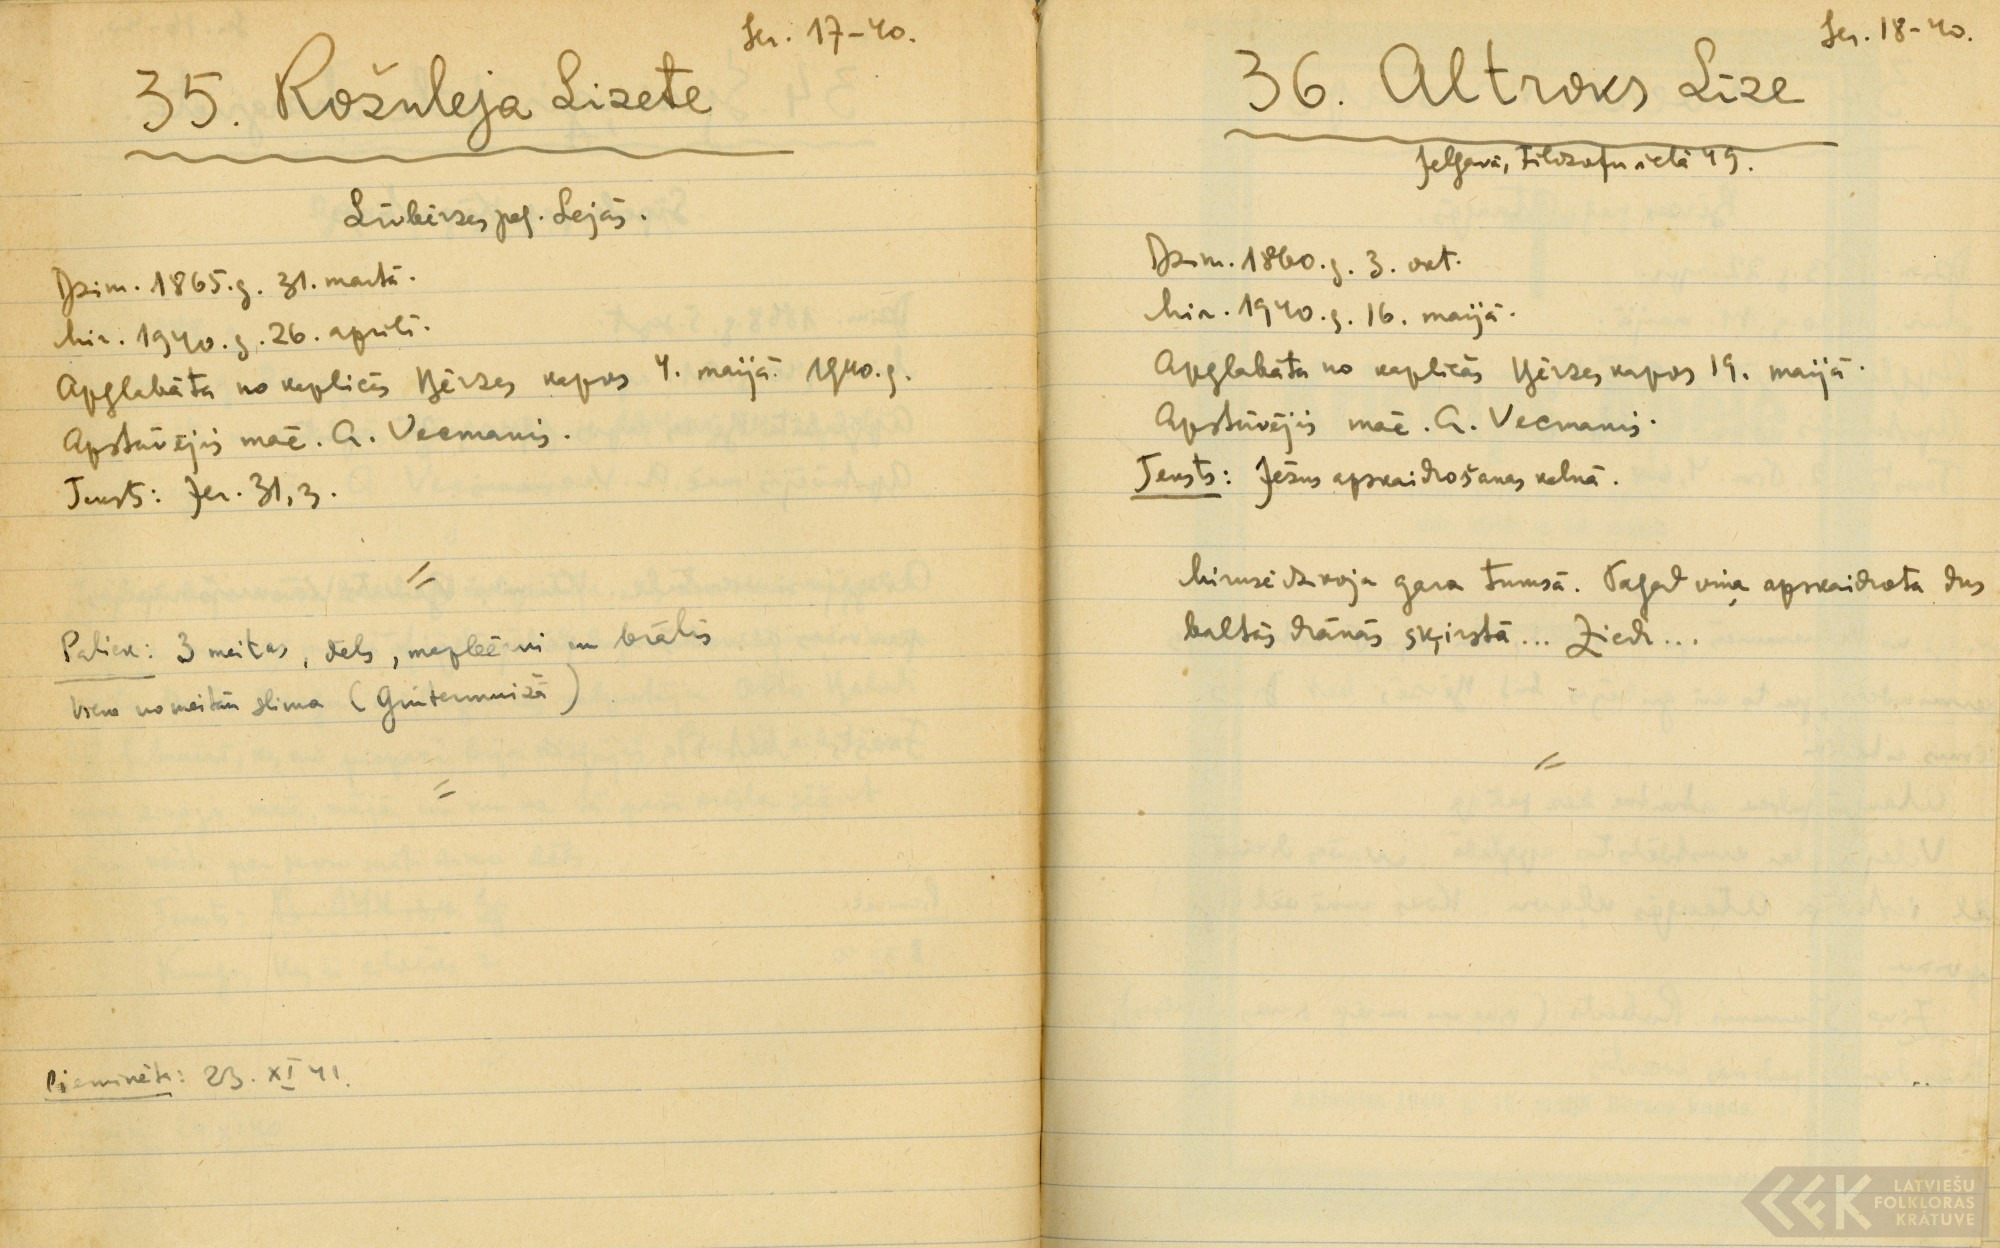 Ier. 17-40.
35. Rožuleja Lizete
Līvbērzes pag. Lejās.
Dzim. 1865.g. 31. martā.
Mir. 1940.g. 26. aprīlī.
Apglabāta no kapličas Bērzes kapos 4. maijā. 1940.g.
Apstāvējis māc. A. Vecmanis.
Teksts: Jer. 31,3.
Paliek: 3 meitas, dēls, mazbērni un brālis
Viena no meitām slima (Ģintermuižā)
Pieminēta: 23. XI 41.
Ier. 18-40.
36. Altroks Līze
Jelgavā, Filozofu ielā 49.
Dzim. 1860.g. 3. okt.
Mir. 1940.g. 16. maijā.
Apglabāta no kapličas Bērzes kapos 19. maijā.
Apstāvējis māc. A. Vecmanis.
Teksts: Jēzus apskaidrošanas kalnā.
Mirusē dzīvoja gara tumsā. Tagad viņa apskaidrota dus
baltās drānās šķirstā... Ziedi...
LATVIEŠU
FOLKLORAS
KRĀTUVE